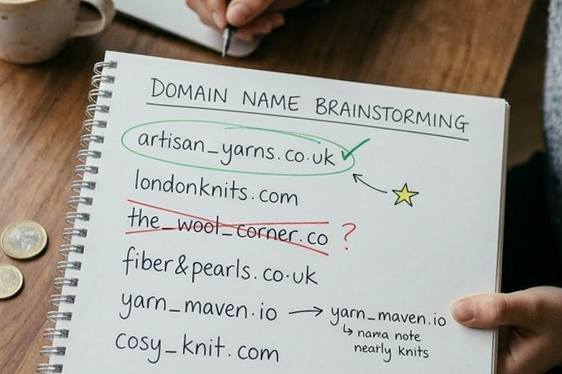 DOMAIN NAME BRAINSTORMING
artisan_yarns.co.uk
londonknits.com
the_wool_corner.co ?
fiber&pearls.co.uk
yarn_maven.io → yarn_maven.io
↳ nama note
nearly knits
cosy_knit.com